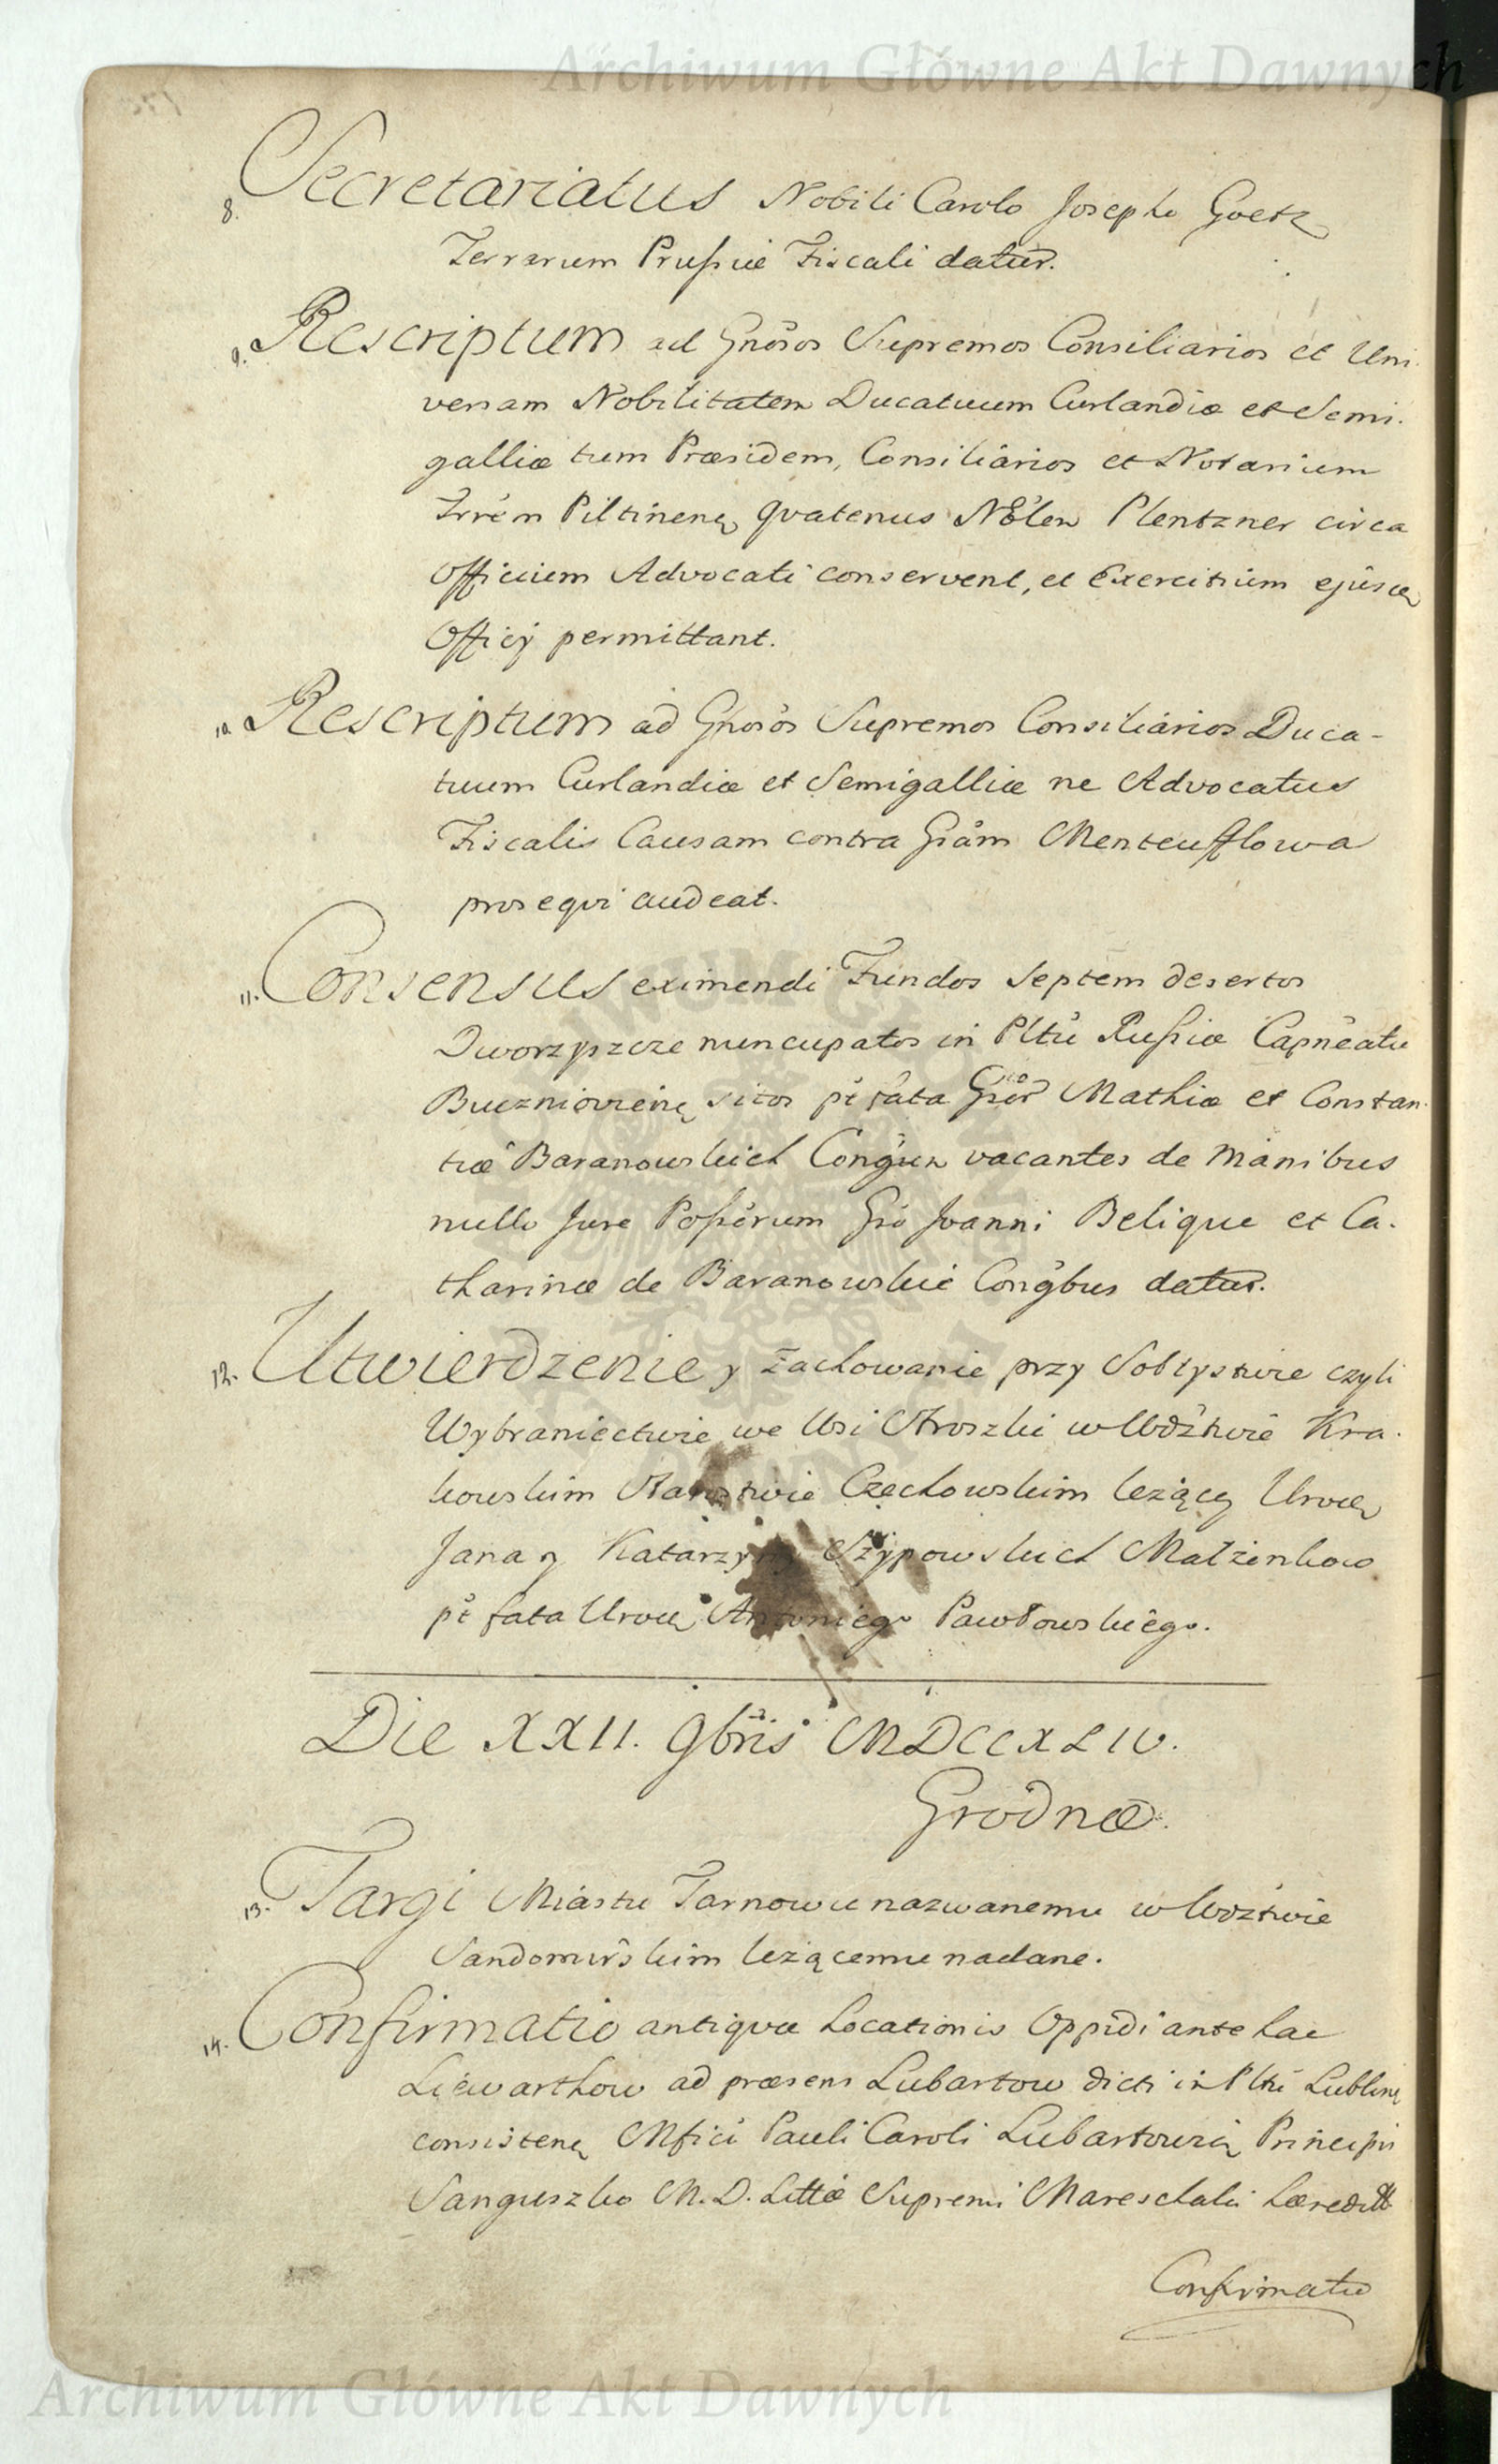 Archiwum Główne Akt Dawnych
8. Secretariatus Nobili Carolo Josepho Goetz
Terrarum Prussiæ Fiscali datur.
9. Rescriptum ad Gnosos Supremos Consiliarios et Uni-
versam Nobilitatem Ducatuum Curlandiæ et Semi-
galliæ tum Præsidem, Consiliarios et Notarium
Trrem Piltinen quatenus Nblem Plentzner circa
Officium Advocati conservent, et Exercitium ejusd
Officij permittant.
10. Rescriptum ad Gnosos Supremos Consiliarios Duca-
tuum Curlandiæ et Semigalliæ ne Advocatus
Fiscalis Causam contra Gsam Menteufflowa
prosequi audeat.
11. Consensus eximendi Fundos Septem desertos
Dworzyszcze nuncupatos in Pltu Russiæ Capneatu
sitos pt fata Gsor Mathiæ et Constan-
tiæ Baranowskich Congum vacantes de manibus
nullo Jure Possorum Gso Joanni Belique et Ca-
tharinæ de Baranowskie Congbus datus.
12. Utwierdzenie y zachowanie przy Soltystwie czyli
Wybraniectwie we Wsi Stroszki w Wdztwie Kra-
kowskim Starostwie Czechowskim leżący Urocz
Jana y Katarzyny Szypowskich Małżenkow
pt fata Urocz Antoniego Pawłowskiego.
Die XXII. 9bris MDCCXLIV.
Grodnæ.
13. Targi Miastu Tarnowu nazwanemu w Wdztwie
Sandomirskim leżącemu nadane.
14. Confirmatio antiquæ Locationis Oppidi ante hac
Liewarthow ad præsens Lubartow dicti in Pltu Lublin
consisten Mfici Pauli Caroli Lubartowicz Principis
Sanguszko M. D. Littæ Supremi Mareschalci hæredit
Confirmatio
Archiwum Główne Akt Dawnych